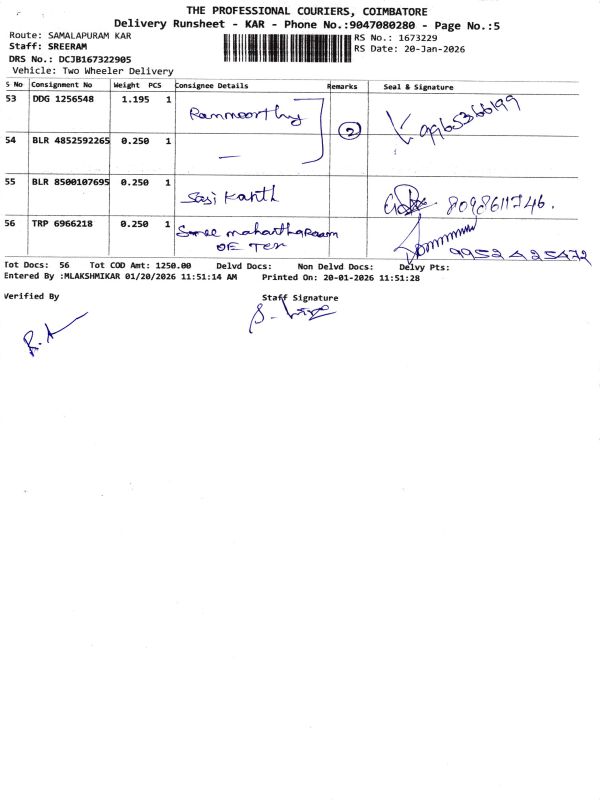 THE PROFESSIONAL COURIERS, COIMBATORE
Delivery Runsheet - KAR - Phone No.:9047080280 - Page No.:5
Route: SAMALAPURAM KAR
RS No.: 1673229
Staff: SREERAM
RS Date: 20-Jan-2026
DRS No.: DCJB167322905
Vehicle: Two Wheeler Delivery
S No Consignment No Weight PCS Consignee Details Remarks Seal & Signature
53 DDG 1256548 1.195 1 Ranmoorthy 2 9965366199
54 BLR 4852592265 0.250 1 —
55 BLR 8500107695 0.250 1 Sasi Kanth 8098611746.
56 TRP 6966218 0.250 1 Sree
OE Tex 9952425472
Tot Docs: 56 Tot COD Amt: 1250.00 Delvd Docs: Non Delvd Docs: Delvy Pts:
Entered By :MLAKSHMIKAR 01/20/2026 11:51:14 AM Printed On: 20-01-2026 11:51:28
Verified By Staff Signature